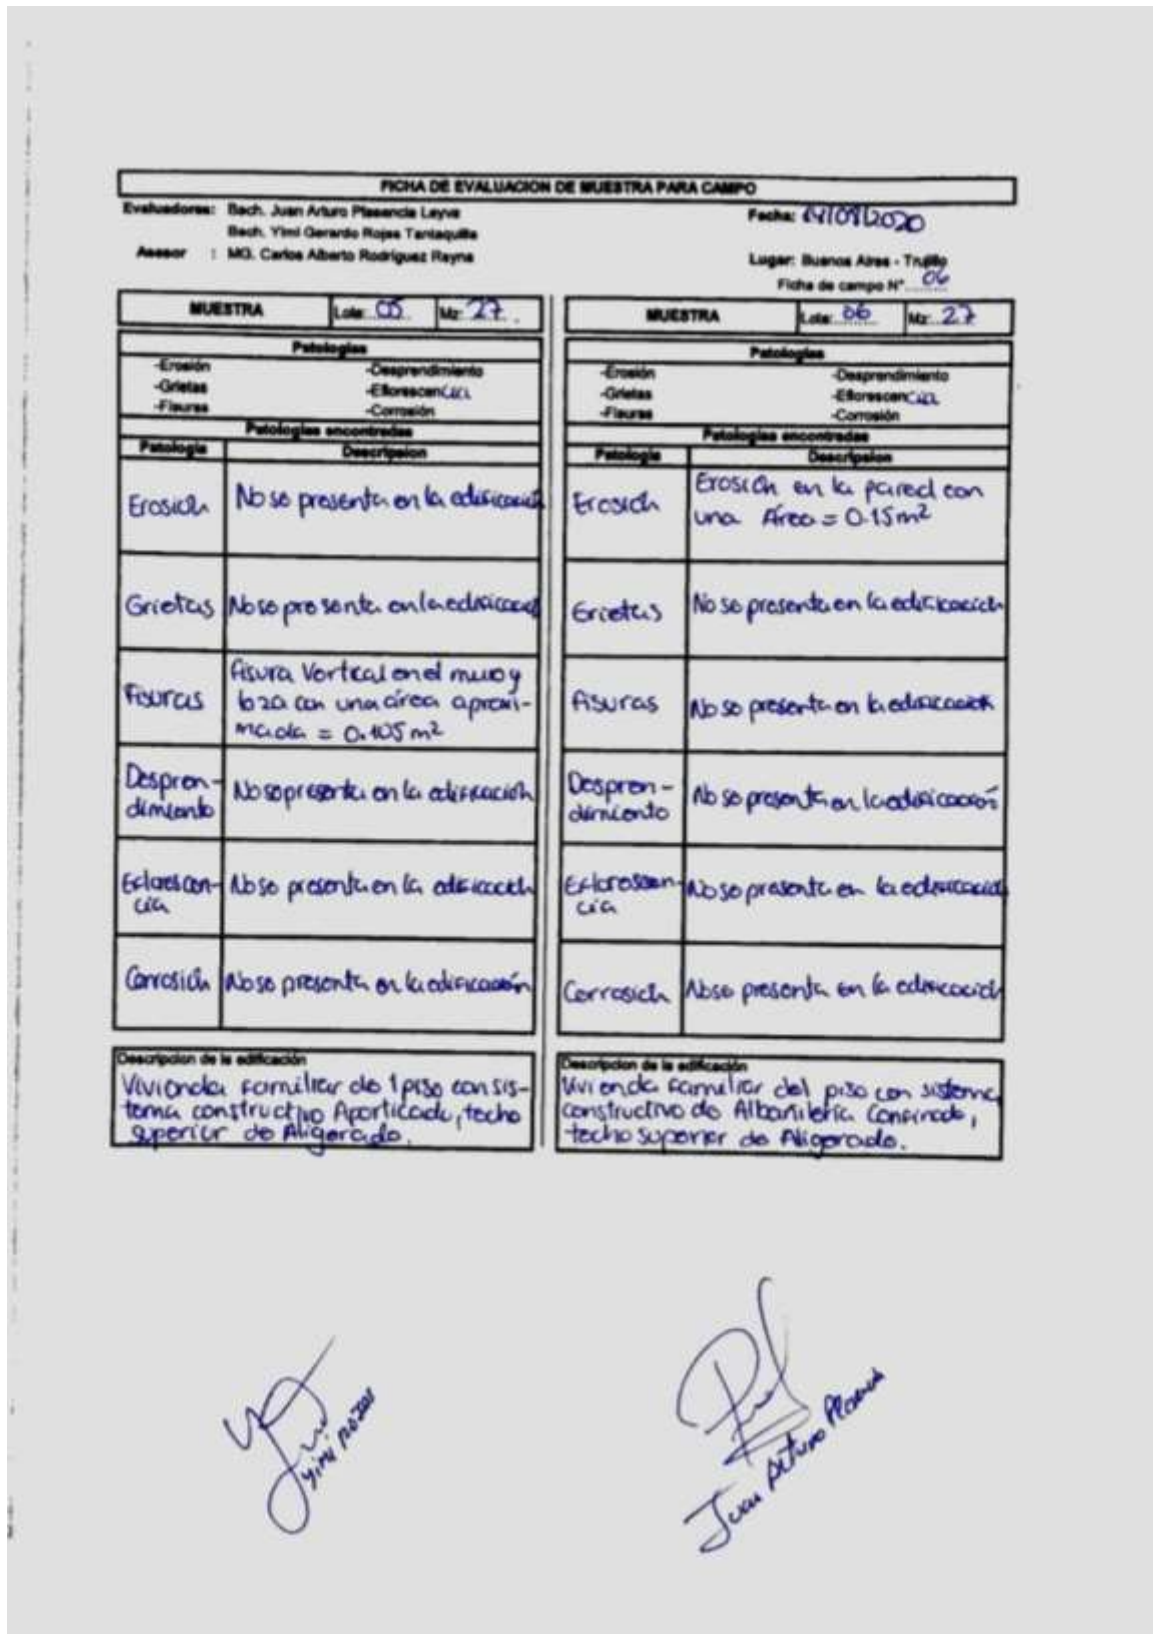 FICHA DE EVALUACION DE MUESTRA PARA CAMPO
Evaluadores: Bach. Juan Arturo Plasencia Leyva
Bach. Yimi Gerardo Rojas Tantaquilla
Asesor : MG. Carlos Alberto Rodriguez Reyna
Fecha: 14/09/2020
Lugar: Buenos Aires - Trujillo
Ficha de campo N° 06
MUESTRA Lote: 05 Mz: 27
Patologias
-Erosión -Desprendimiento
-Grietas -Eflorescencia
-Fisuras -Corrosión
Patologias encontradas
Patologia Descripsion
Erosión No se presenta en la edificación
Grietas No se presenta en la edificación
Fisuras Fisura Vertical en el muro y
loza con una área aproxi-
mada = 0.105 m²
Despren-
dimiento No se presenta en la edificación
Eflorescen-
cia No se presenta en la edificación
Corrosión No se presenta en la edificación
Descripcion de la edificación
Vivienda familiar de 1 piso con sis-
tema constructivo Aporticado, techo
superior de Aligerado.
MUESTRA Lote: 06 Mz: 27
Patologias
-Erosión -Desprendimiento
-Grietas -Eflorescencia
-Fisuras -Corrosión
Patologias encontradas
Patologia Descripsion
Erosión Erosión en la pared con
una Área = 0.15 m²
Grietas No se presenta en la edificación
Fisuras No se presenta en la edificación
Despren-
dimiento No se presenta en la edificación
Eflorescen-
cia No se presenta en la edificación
Corrosión No se presenta en la edificación
Descripcion de la edificación
Vivienda familiar de 1 piso con sistema
constructivo de Albañilería Confinada,
techo superior de Aligerado.
Yimi Rojas
Juan Arturo Plasencia